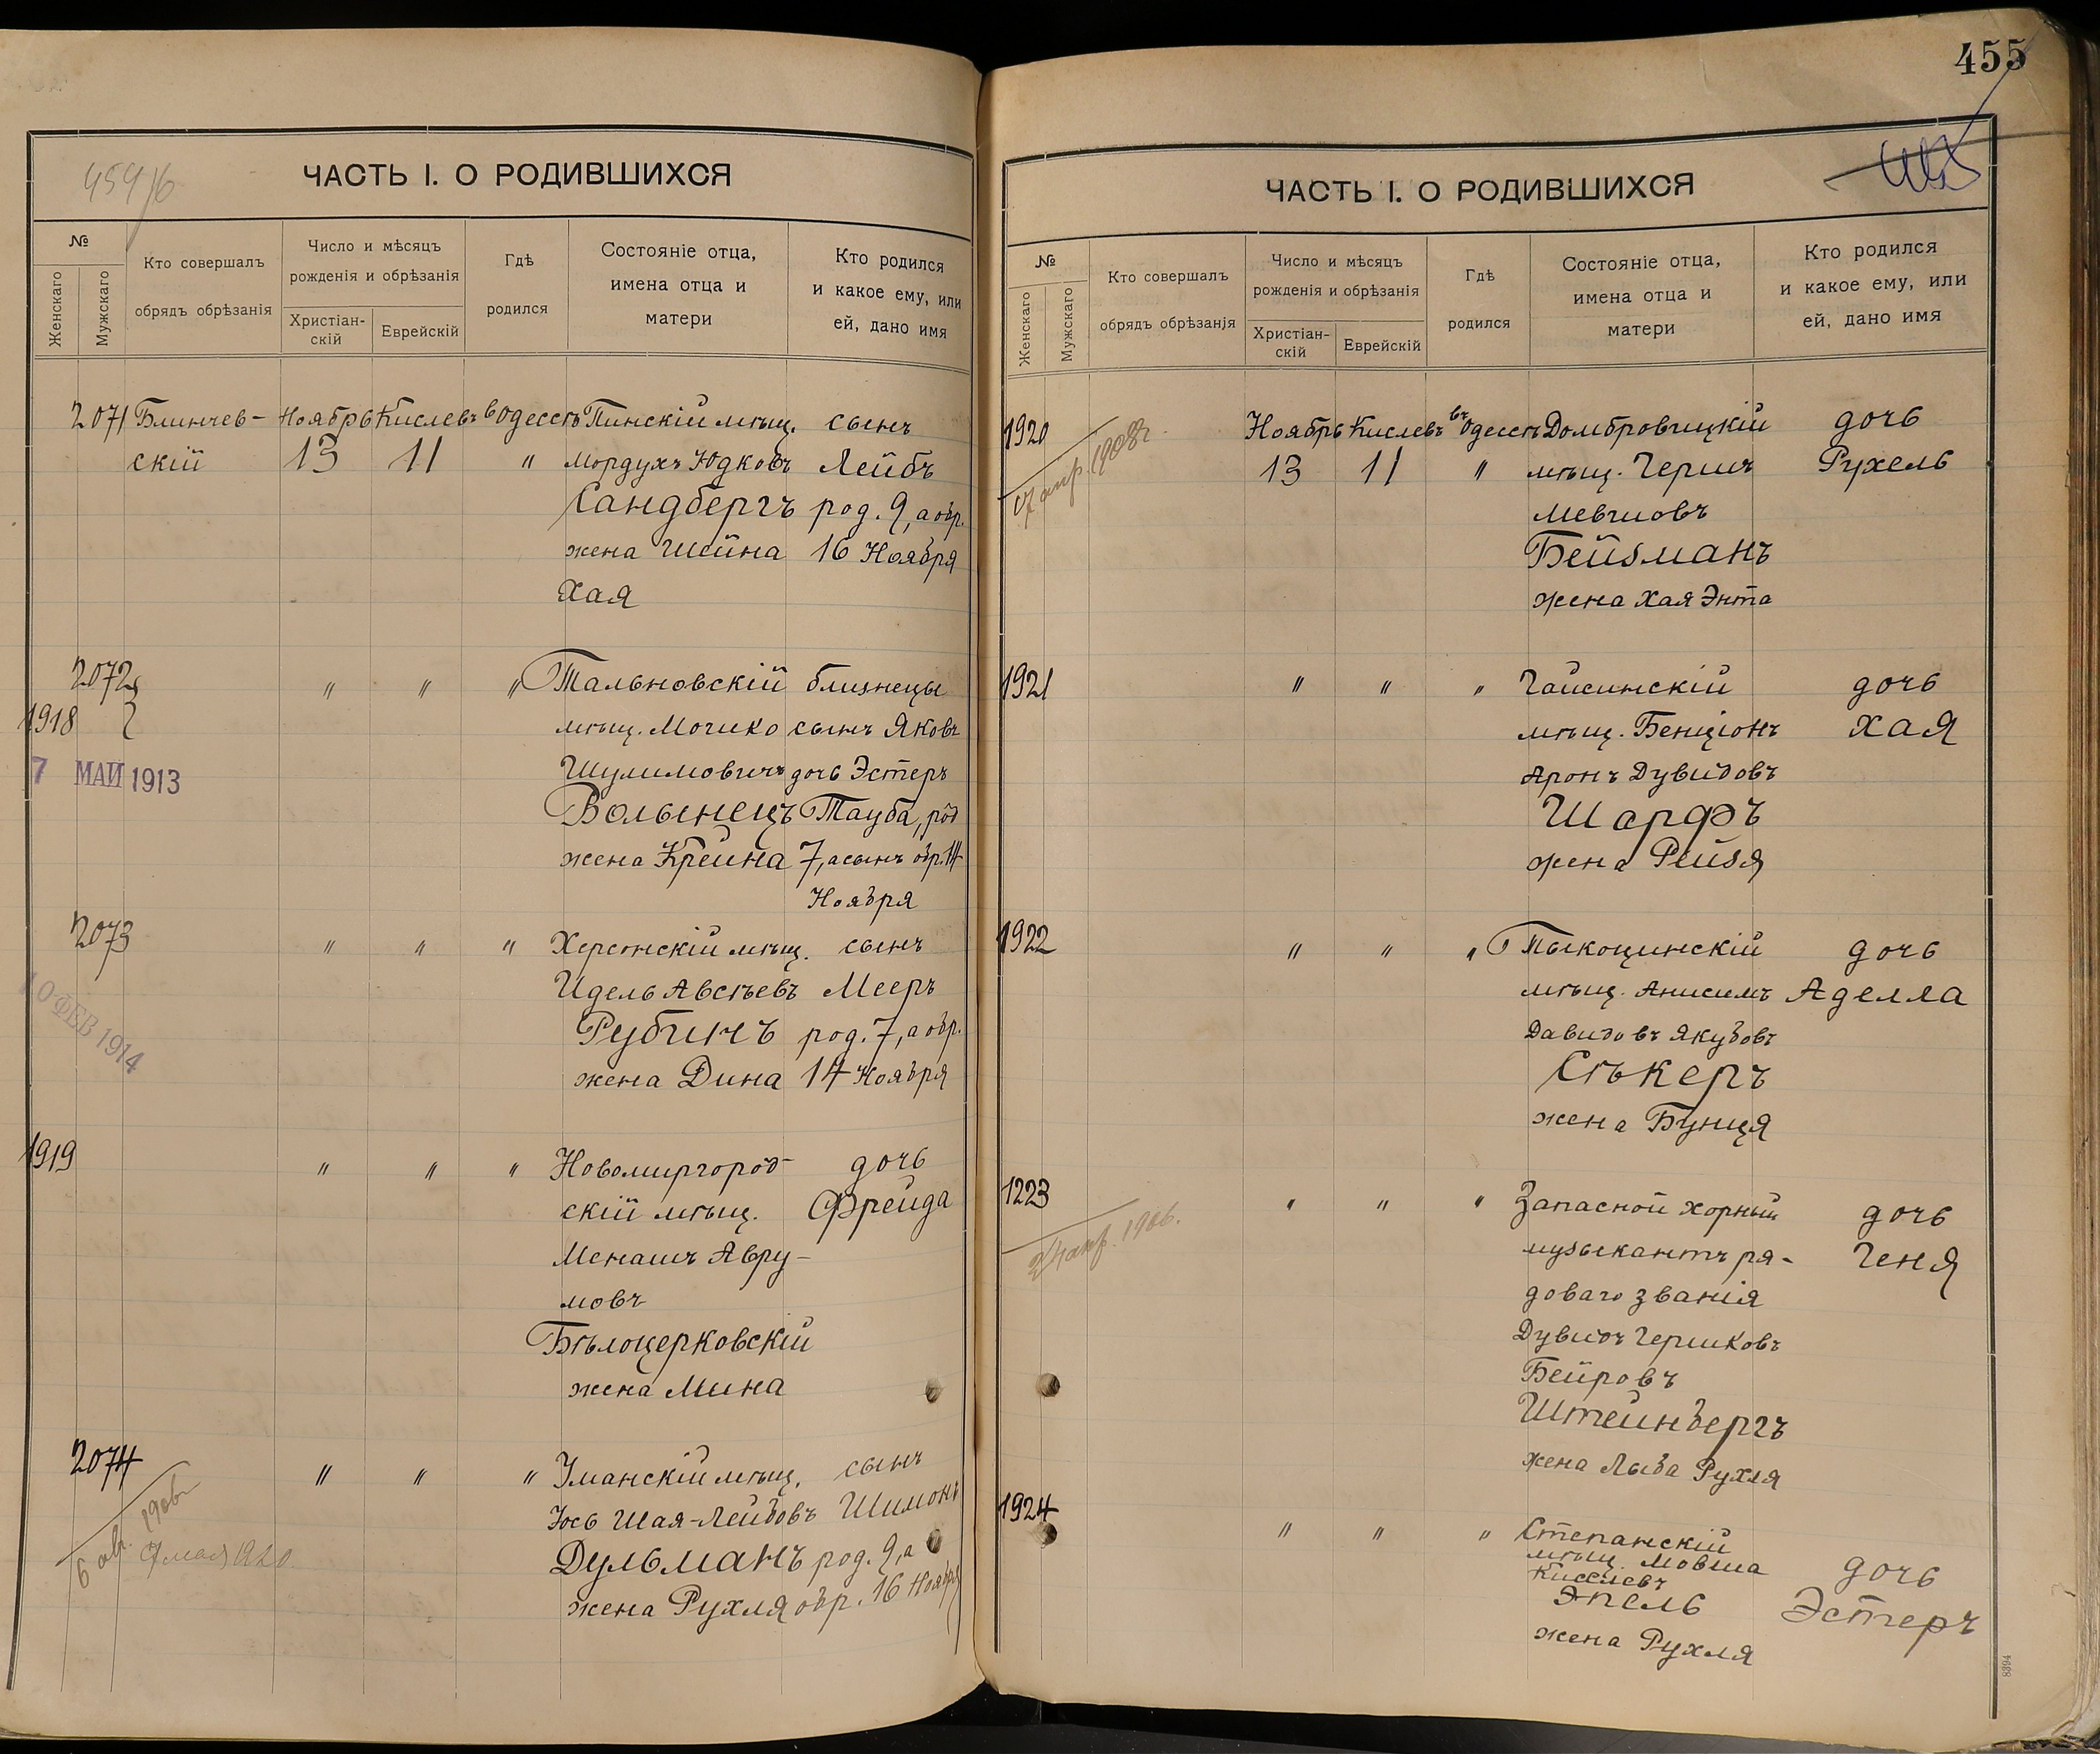 455
454/6
ЧАСТЬ I. О РОДИВШИХСЯ
№
Женскаго
Мужскаго
Кто совершалъ
обрядъ обрѣзанія
Число и мѣсяцъ
рожденія и обрѣзанія
Христіан-
скій
Еврейскій
Гдѣ
родился
Состояніе отца,
имена отца и
матери
Кто родился
и какое ему, или
ей, дано имя
2071 Блинчев- Ноябрь Кислевъ въ Одессѣ Пинскій мѣщ. сынъ
скій 13 11 " Мордухъ Юдковъ Лейбъ
Сандбергъ род. 9, а обр.
жена Шейна 16 Ноября
Хая
2072 " " " Тальновскій близнецы
1918 мѣщ. Мошко сынъ Яковъ
7 МАЙ 1913 Шулимовичъ дочь Эстеръ
Волынецъ Тауба, род
жена Крейна 7, а сынъ обр. 14
Ноября
2073 " " " Херсонскій мѣщ. сынъ
10 ФЕВ 1914 Идель Авсѣевъ Мееръ
Рубинъ род. 7, а обр.
жена Дина 14 Ноября
1919 " " " Новомиргород- дочь
скій мѣщ. Фрейда
Менашъ Авру-
мовъ
Бѣлоцерковскій
жена Мина
2074 " " " Уманскій мѣщ. сынъ
Іось Шая-Лейбовъ Шимонъ
Дульманъ род. 9, а
мая 1920
жена Рухля обр. 16 Ноября
ЧАСТЬ I. О РОДИВШИХСЯ
№
Женскаго
Мужскаго
Кто совершалъ
обрядъ обрѣзанія
Число и мѣсяцъ
рожденія и обрѣзанія
Христіан-
скій
Еврейскій
Гдѣ
родился
Состояніе отца,
имена отца и
матери
Кто родился
и какое ему, или
ей, дано имя
1920 Ноябрь Кислевъ въ Одессѣ Домбровицкій дочь
13 11 " мѣщ. Гершъ Рухель
апр. 1908г.
Мевшовъ
Бейзманъ
жена Хая Энта
1921 " " " Гайсинскій дочь
мѣщ. Бенціонъ Хая
Аронъ Дувидовъ
Шарфъ
жена Рейзя
1922 " " " Тыкоцинскій дочь
мѣщ. Анисимъ Аделла
Давидовъ Якубовъ
Сѣкеръ
жена Бунця
1223 " " " Запасной хорный дочь
24 апр. 1906.
музыкантъ ря- Геня
доваго званія
Дувидъ Гершковъ
Бейровъ
Штейнбергъ
жена Лыба Рухля
1924 " " " Степанскій
мѣщ. Мовша дочь
Киселевъ
Эпель Эстеръ
жена Рухля
8394